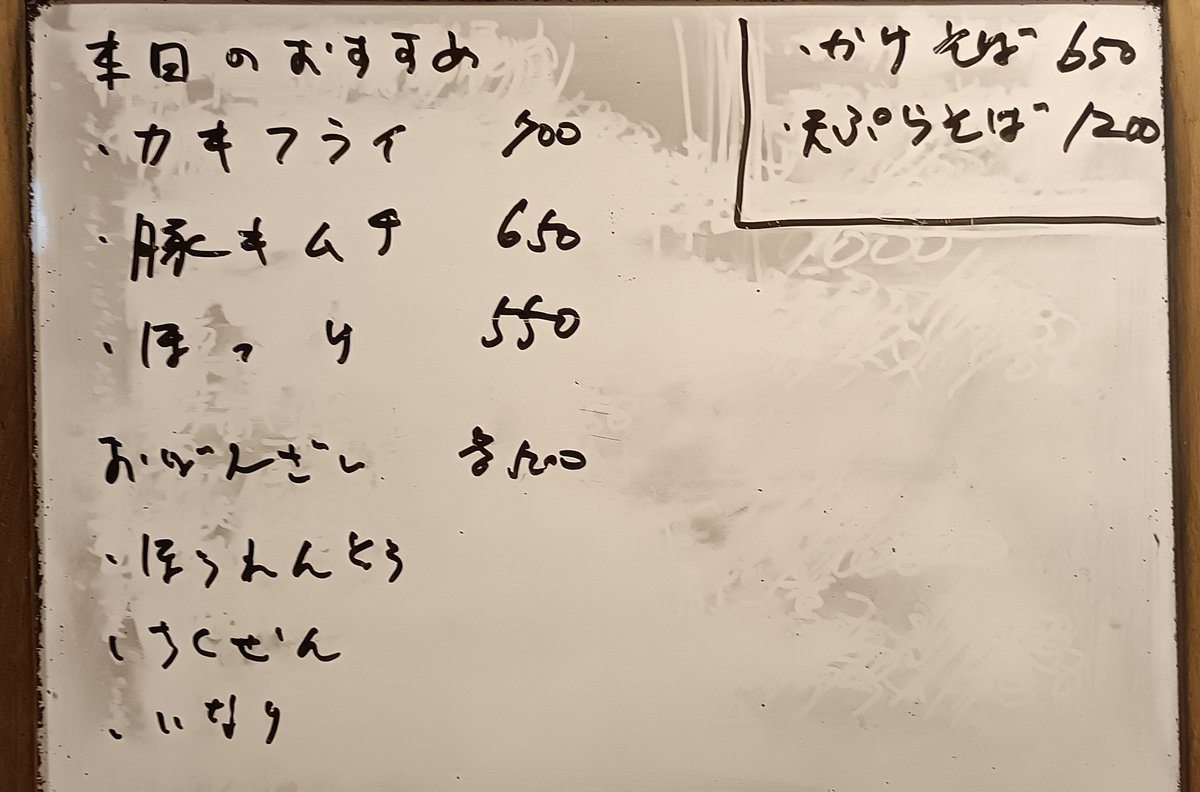 本日のおすすめ
・カキフライ 700
・豚キムチ 650
・ほっけ 550
おばんざい 各500
・ほうれんとう
・ちくぜん
・いなり
・かけそば 650
・天ぷらそば 1200